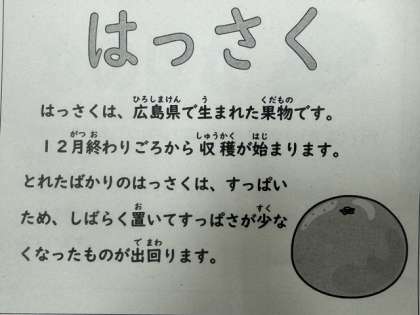 はっさく
はっさくは、広島県で生まれた果物です。
12月終わりごろから収穫が始まります。
とれたばかりのはっさくは、すっぱい
ため、しばらく置いてすっぱさが少な
くなったものが出回ります。